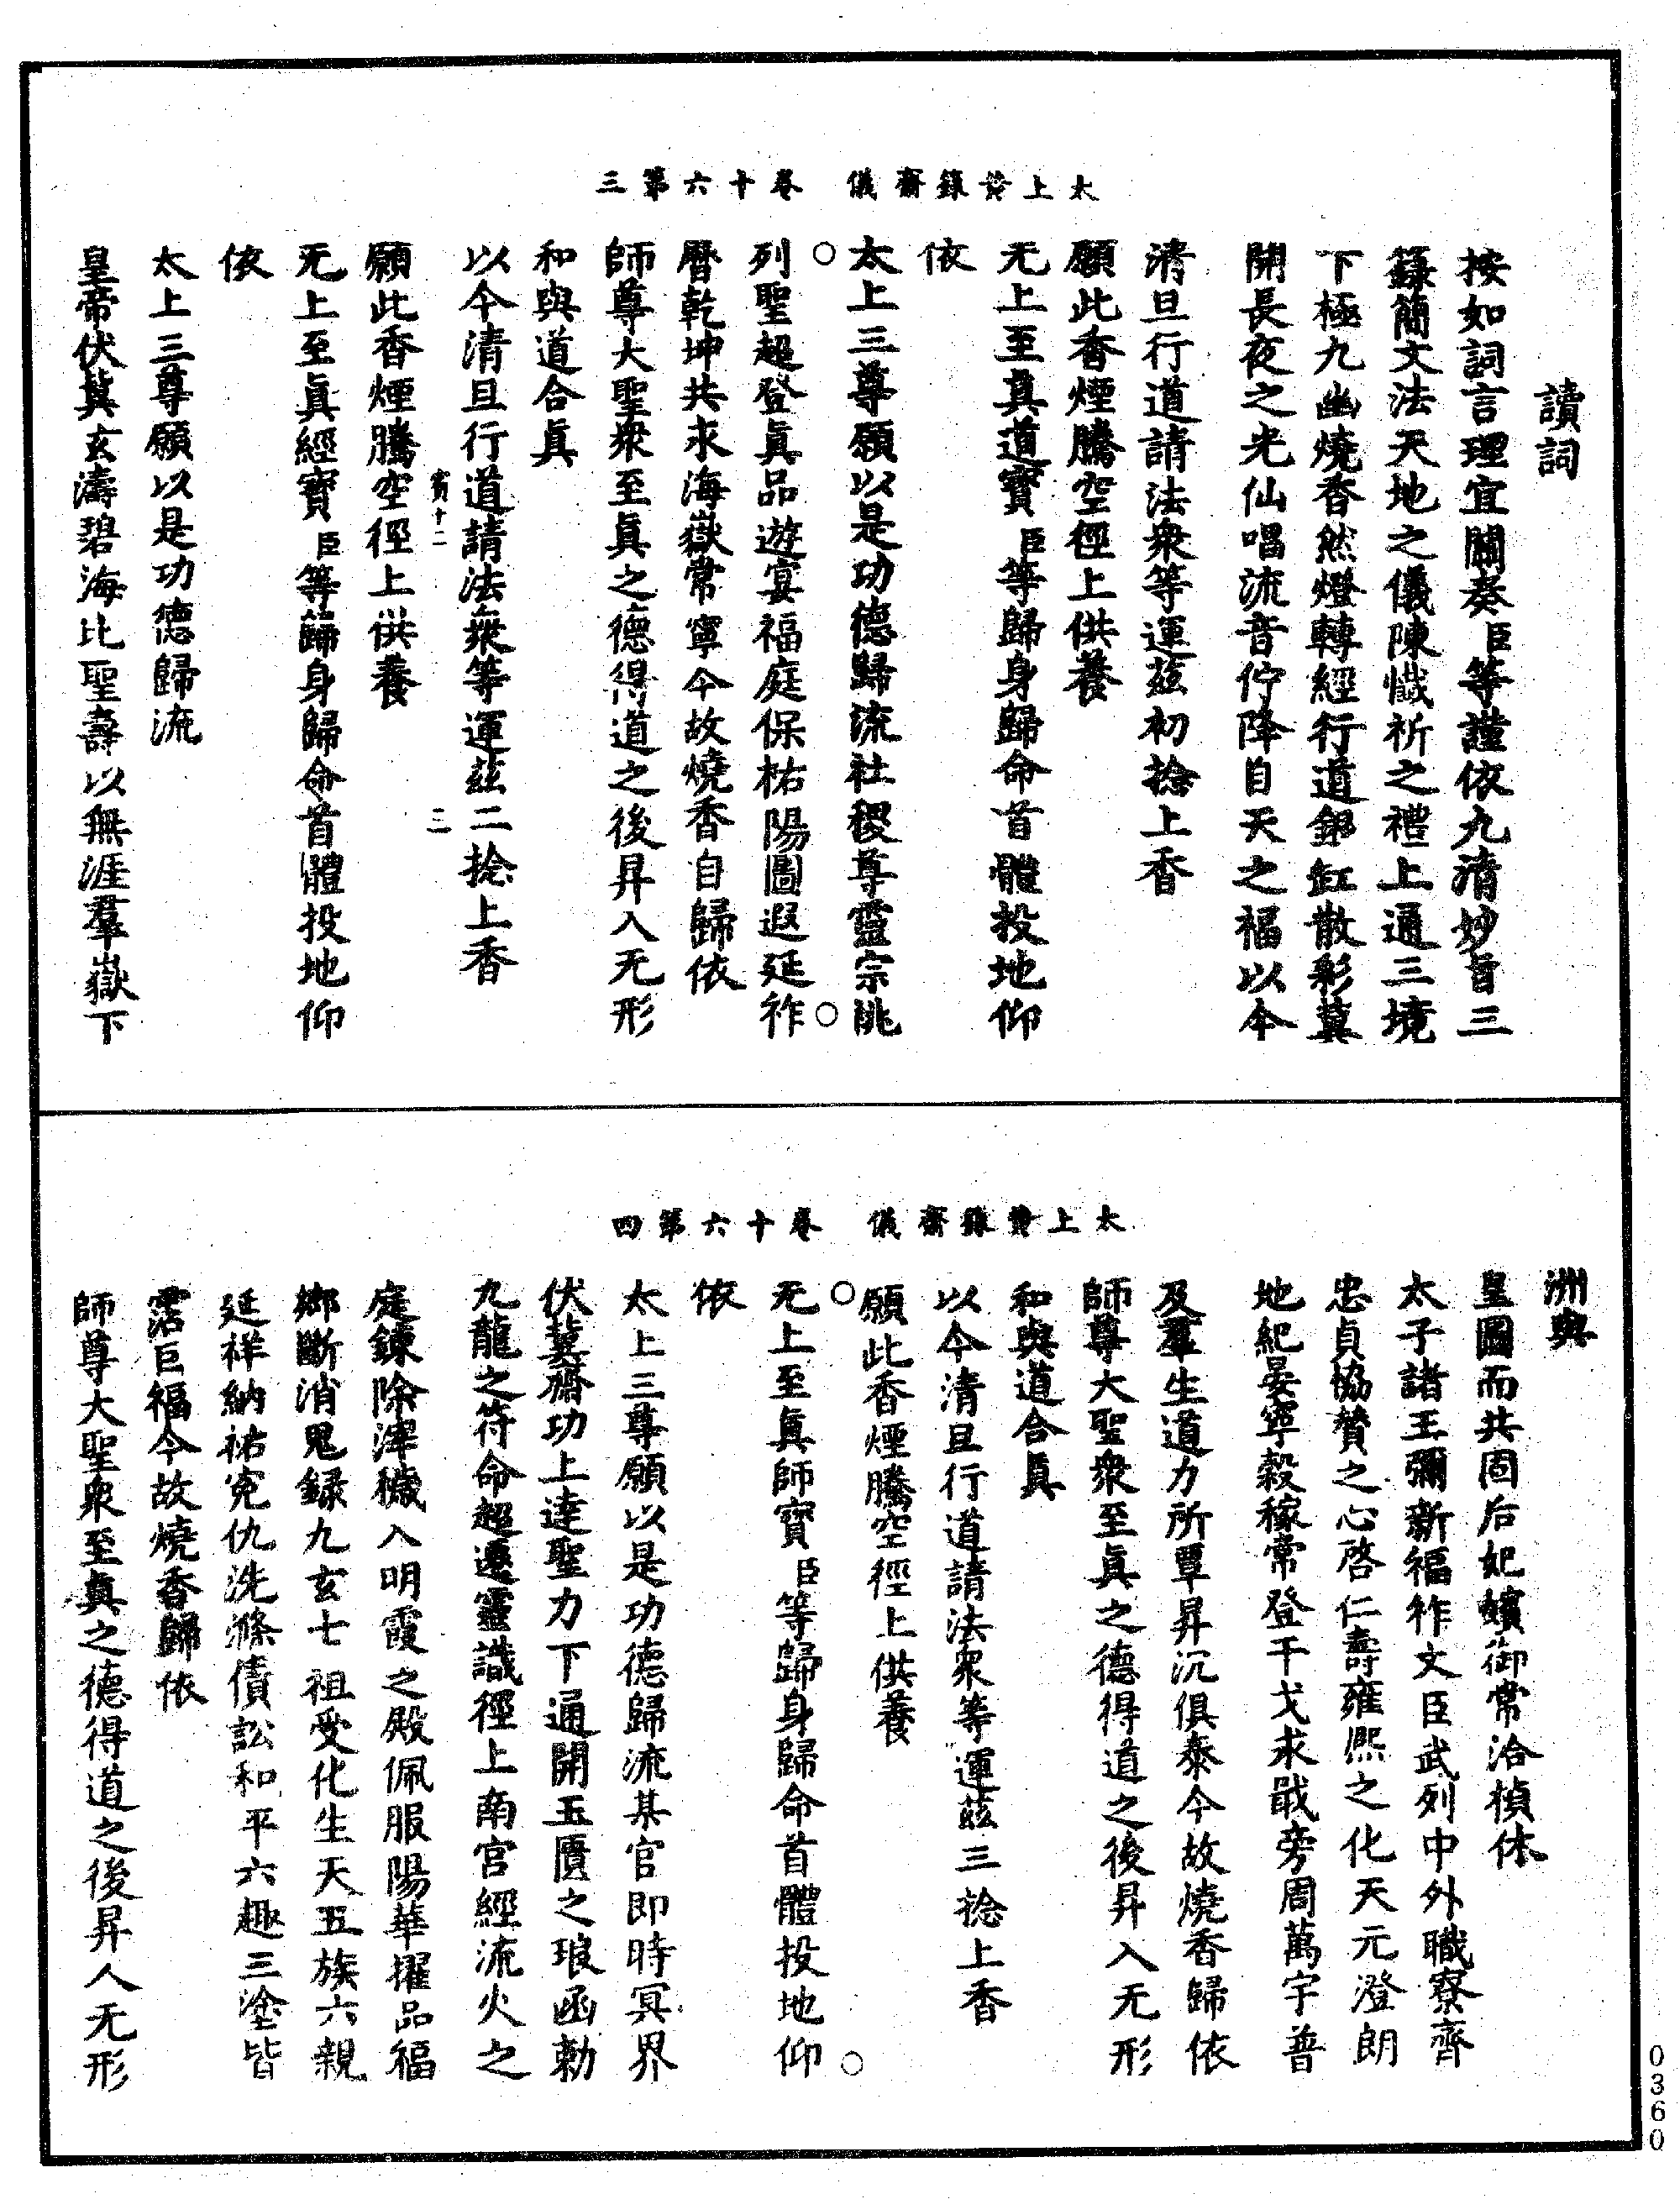 太上黃籙齋儀　卷十六第三
讀詞
按如詞言理宜關奏臣等謹依九清妙旨三
籙簡文法天地之儀陳懺祈之禮上通三境
下極九幽燒香然燈轉經行道銀缸散彩冀
開長夜之光仙唱流音佇降自天之福以今
清旦行道請法衆等運茲初捻上香
願此香煙騰空徑上供養
无上至真道寶臣等歸身歸命首體投地仰
依
太上三尊願以是功德歸流社稷尊靈宗祧
列聖超登眞品遊宴福庭保祐陽圖遐延祚
曆乾坤共求海嶽常寧今故燒香自歸依
師尊大聖衆至眞之德得道之後昇入无形
和與道合眞
以今清旦行道請法衆等運茲二捻上香
賓十二　三
願此香煙騰空徑上供養
无上至眞經寶臣等歸身歸命首體投地仰
依
太上三尊願以是功德歸流
皇帝伏冀玄濤碧海比聖壽以無涯羣嶽下
太上黃籙齋儀　卷十六第四
洲與
皇圖而共固后妃嬪御常洽楨休
太子諸王彌新福祚文臣武列中外職寮齊
忠貞協贊之心啓仁壽雍熙之化天元澄朗
地紀晏寧穀稼常登干戈求戢旁周萬宇普
及羣生道力所覃昇沉俱泰今故燒香歸依
師尊大聖衆至眞之德得道之後昇入无形
和與道合眞
以今清旦行道請法衆等運茲三捻上香
願此香煙騰空徑上供養
无上至眞師寶臣等歸身歸命首體投地仰
依
太上三尊願以是功德歸流某官即時冥界
伏冀齋功上達聖力下通開玉匱之琅函勅
九龍之符命超遷靈識徑上南宮經流火之
庭鍊除滓穢入明霞之殿佩服陽華擢品福
鄉斷消鬼錄九玄七祖受化生天五族六親
延祥納祐寃仇洗滌債訟和平六趣三塗皆
霑巨福今故燒香歸依
師尊大聖衆至真之德得道之後昇人无形
0360